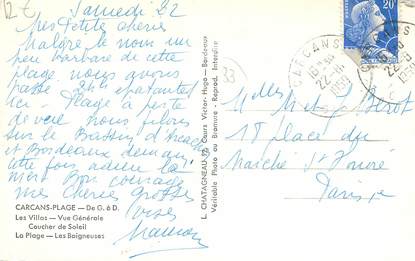 Samedi 22
Mes Petites chéries
Malgré le nom un
peu barbare de cette
plage nous avons
passé 24h épatantes
ici Plage à perte
de vue nous filons
sur le Bassin d'Arcach
et Bordeaux demain
cette fois adieu la
mer Bon courage
mes chéries grosses
bises
Maman
CARCANS-PLAGE — De G. à D.
Les Villas — Vue Générale
Coucher de Soleil
La Plage — Les Baigneuses
L. CHATAGNEAU, Cours Victor-Hugo - Bordeaux
Véritable Photo au Bromure - Reprod. Interdite
33
20
CARCANS
22
CARCANS
22
Melles
18 place du
Marché St Honoré
Paris 1e